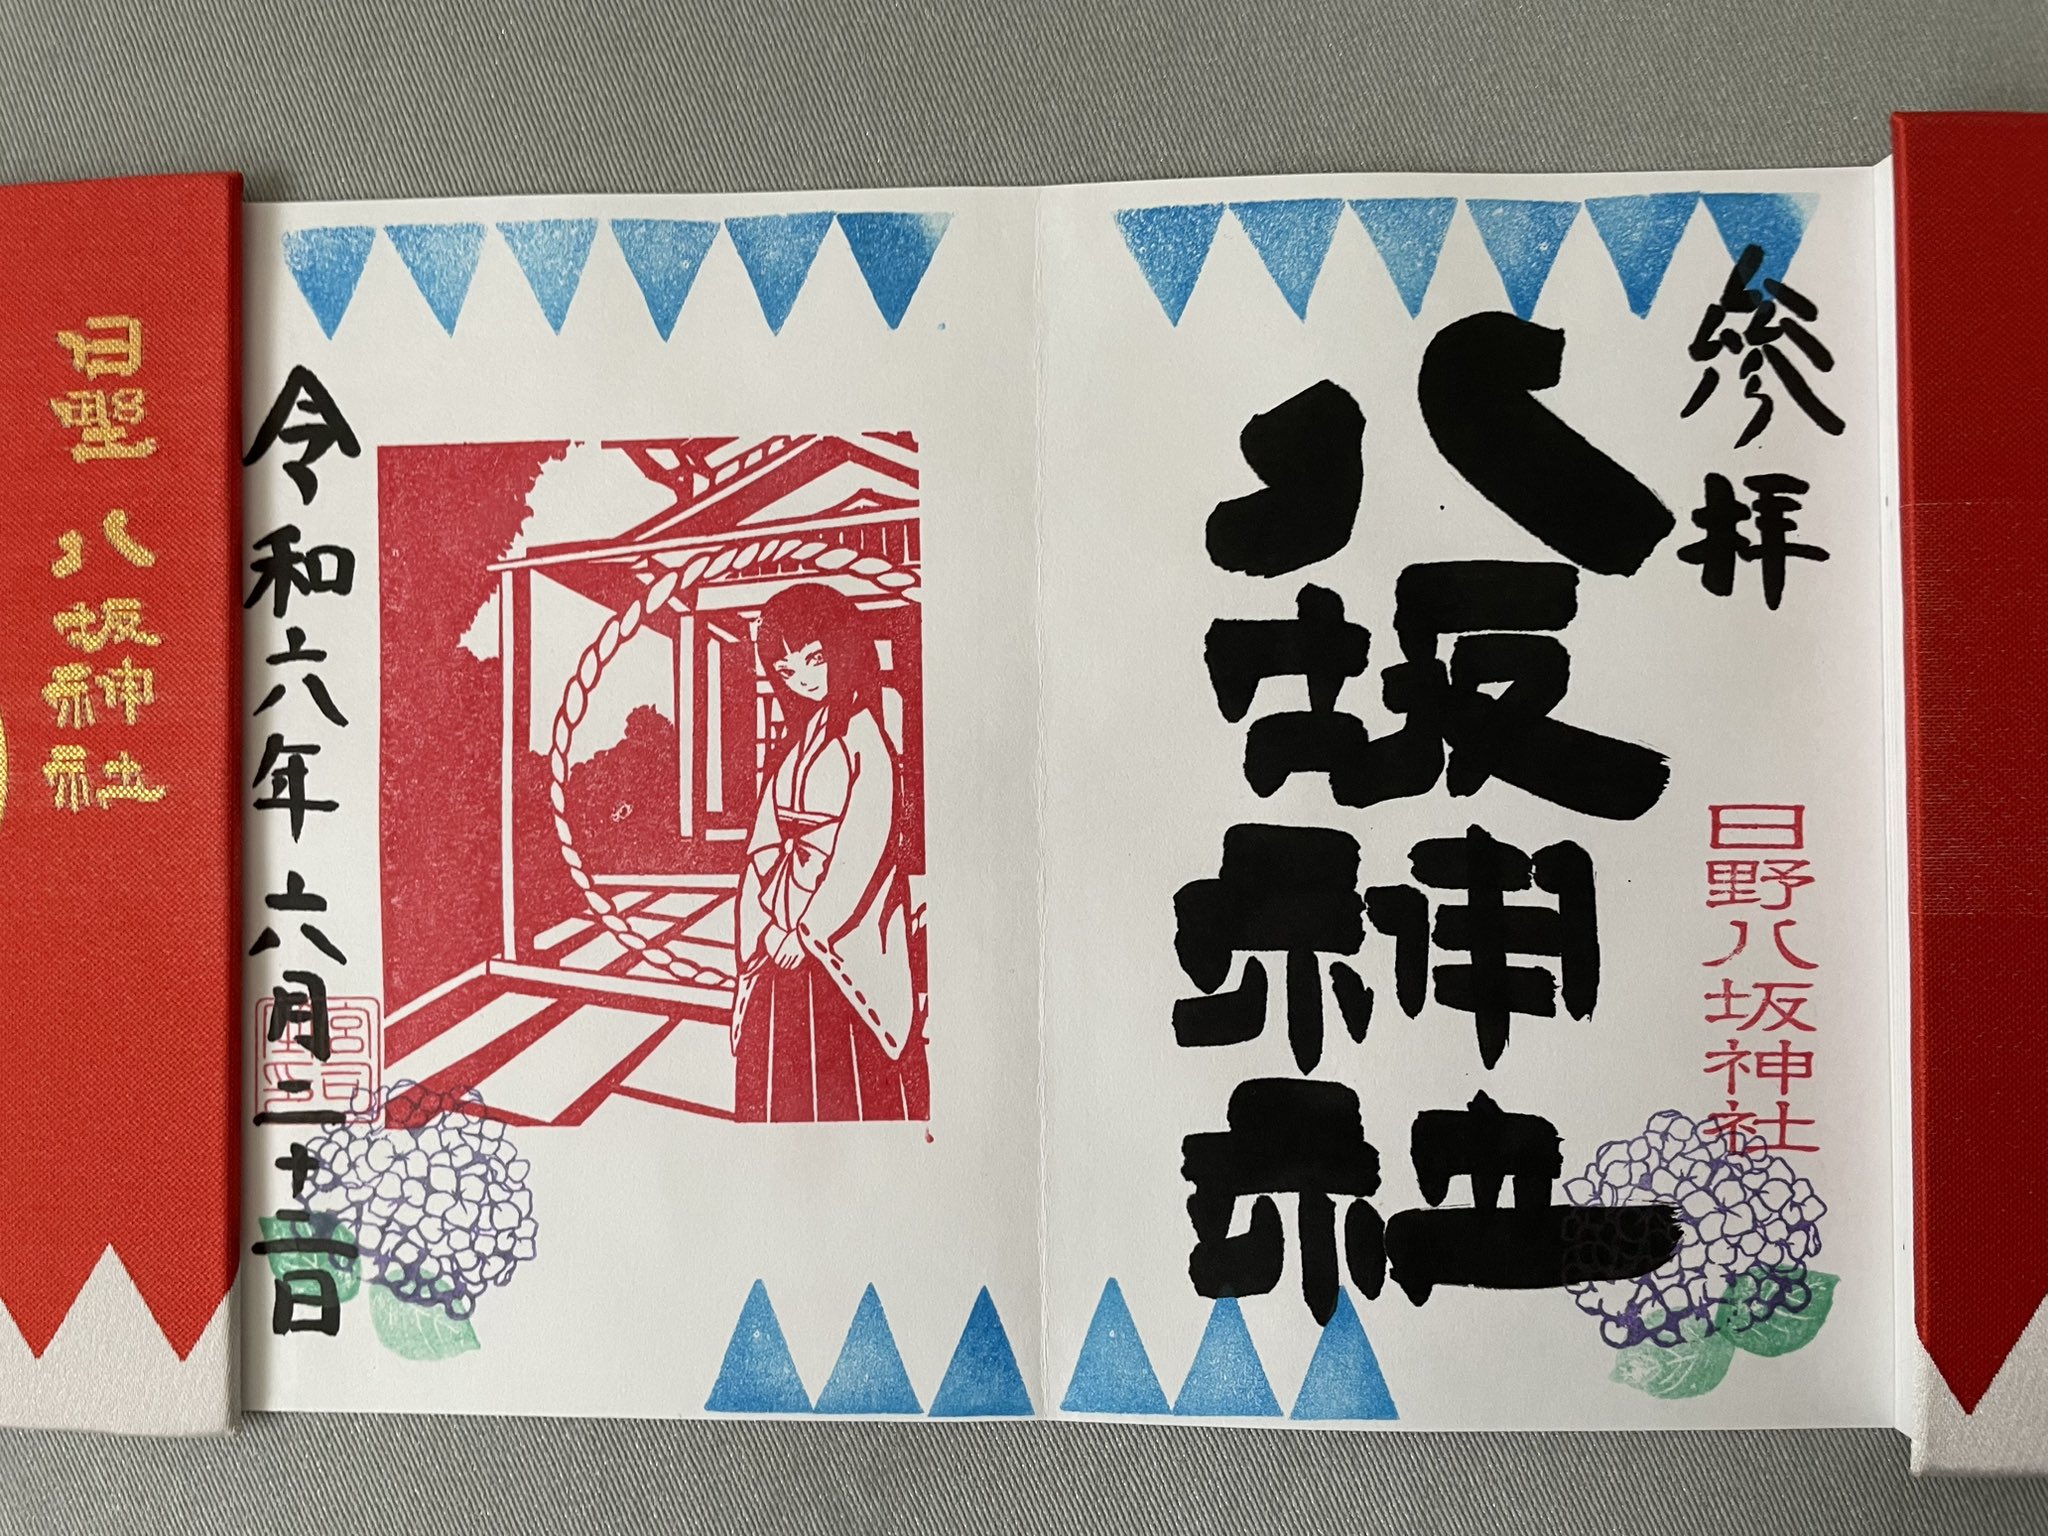 參拝
八坂神社
日野八坂神社
令和六年六月二十二日
日野 八坂神社